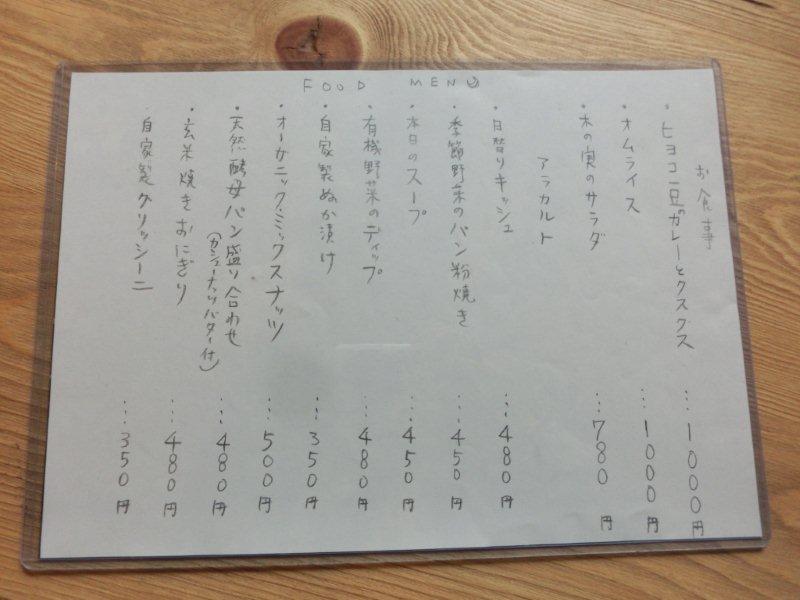 FOOD MENU
お食事
・ヒヨコ豆のカレーとクスクス …1000円
・オムライス …1000円
・木の実のサラダ …780円
アラカルト
・日替りキッシュ …480円
・季節野菜のパン粉焼き …450円
・本日のスープ …450円
・有機野菜のディップ …480円
・自家製ぬか漬け …350円
・オーガニックミックスナッツ …500円
・天然酵母パン盛り合わせ …480円
(カシューナッツバター付)
・玄米焼きおにぎり …480円
・自家製グリッシーニ …350円